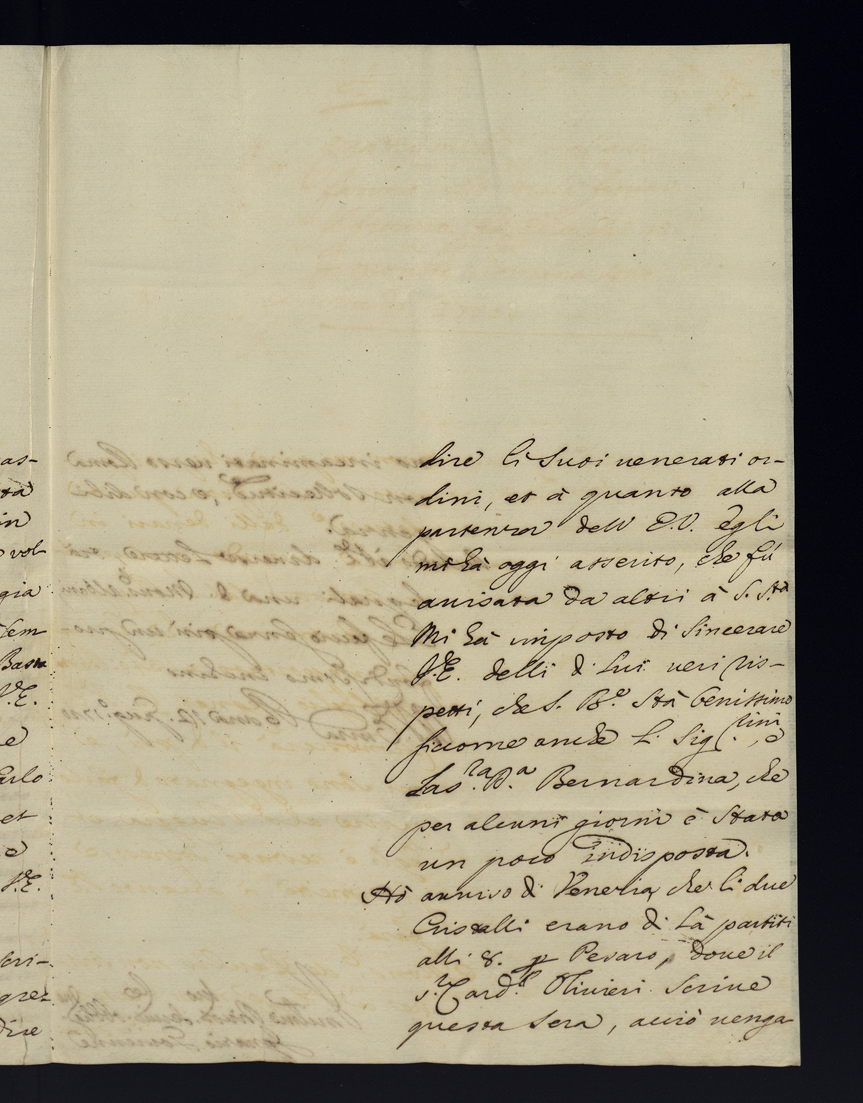 as-
in
vol-
gia
Sem
Basta
V.E.
e
Carlo
et
e
V.E.
scri-
grez-
dire
dire li suoi uenerati or-
dini, et à quanto alla
partenza dell' E.V. egli
mi hà oggi asserito, che fù
auisata da altri à S. Stà
Mi hà imposto di sincerare
V.E. delli di lui ueri ris-
petti, che S. B.e stà benissimo
siccome anche li Sig.rini, e
la s.ra D.a Bernardina, che
per alcuni giorni è stata
un poco indisposta.
Hò auuiso di Venezia, che li due
Cristalli erano di là partiti
alli 8. p Pesaro, doue il
s.r Card.l Oliuieri scriue
questa sera, acciò uenga-